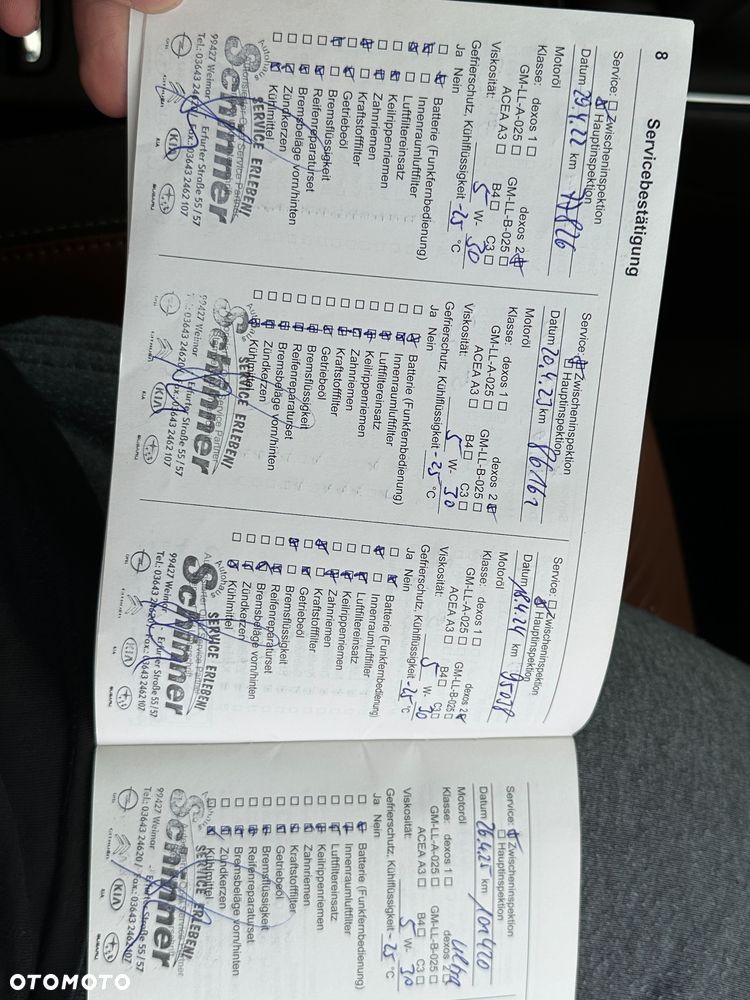 8
Servicebestätigung
Service: Zwischeninspektion
Hauptinspektion
Datum 29.4.22 km 77826
Motoröl
Klasse: dexos 1 dexos 2
GM-LL-A-025 GM-LL-B-025
ACEA A3 B4 C3
Viskosität: 5 W- 30
Gefrierschutz, Kühlflüssigkeit -25 °C
Ja Nein
Batterie (Funkfernbedienung)
Innenraumluftfilter
Luftfiltereinsatz
Keilrippenriemen
Zahnriemen
Kraftstofffilter
Getriebeöl
Bremsflüssigkeit
Reifenreparaturset
Bremsbeläge vorn/hinten
Zündkerzen
Kühlmittel
Autohaus
SERVICE ERLEBEN!
Schinner
99427 Weimar Erfurter Straße 55 / 57
Tel.: 03643 2462 Fax: 03643 2462 107
CITROËN
KIA
SUBARU
Service: Zwischeninspektion
Hauptinspektion
Datum 20.4.23 km 86161
Motoröl
Klasse: dexos 1 dexos 2
GM-LL-A-025 GM-LL-B-025
ACEA A3 B4 C3
Viskosität: 5 W- 30
Gefrierschutz, Kühlflüssigkeit -25 °C
Ja Nein
Batterie (Funkfernbedienung)
Innenraumluftfilter
Luftfiltereinsatz
Keilrippenriemen
Zahnriemen
Kraftstofffilter
Getriebeöl
Bremsflüssigkeit
Reifenreparaturset
Bremsbeläge vorn/hinten
Zündkerzen
Kühlmittel
SERVICE ERLEBEN!
Schinner
99427 Weimar Erfurter Straße 55 / 57
Tel.: 03643 24620 Fax: 03643 2462 107
CITROËN
KIA
SUBARU
Service: Zwischeninspektion
Hauptinspektion
Datum 18.4.24 km 95038
Motoröl
Klasse: dexos 1 dexos 2
GM-LL-A-025 GM-LL-B-025
ACEA A3 B4 C3
Viskosität: 5 W- 30
Gefrierschutz, Kühlflüssigkeit -25 °C
Ja Nein
Batterie (Funkfernbedienung)
Innenraumluftfilter
Luftfiltereinsatz
Keilrippenriemen
Zahnriemen
Kraftstofffilter
Getriebeöl
Bremsflüssigkeit
Reifenreparaturset
Bremsbeläge vorn/hinten
Zündkerzen
Kühlmittel
Autohaus
SERVICE ERLEBEN!
Schinner
99427 Weimar Erfurter Straße 55 / 57
Tel.: 03643 24620 Fax: 03643 2462 107
CITROËN
KIA
SUBARU
Service: Zwischeninspektion
Hauptinspektion
Datum 26.4.25 km 101420
Motoröl
Klasse: dexos 1 dexos 2
GM-LL-A-025 GM-LL-B-025
ACEA A3 B4 C3
Viskosität: 5 W- 30
Gefrierschutz, Kühlflüssigkeit -25 °C
Ja Nein
Batterie (Funkfernbedienung)
Innenraumluftfilter
Luftfiltereinsatz
Keilrippenriemen
Zahnriemen
Kraftstofffilter
Getriebeöl
Bremsflüssigkeit
Reifenreparaturset
Bremsbeläge vorn/hinten
Zündkerzen
Kühlmittel
SERVICE ERLEBEN!
Schinner
99427 Weimar Erfurter Straße 55 / 57
Tel.: 03643 24620 Fax: 03643 2462 107
CITROËN
KIA
SUBARU
OTOMOTO